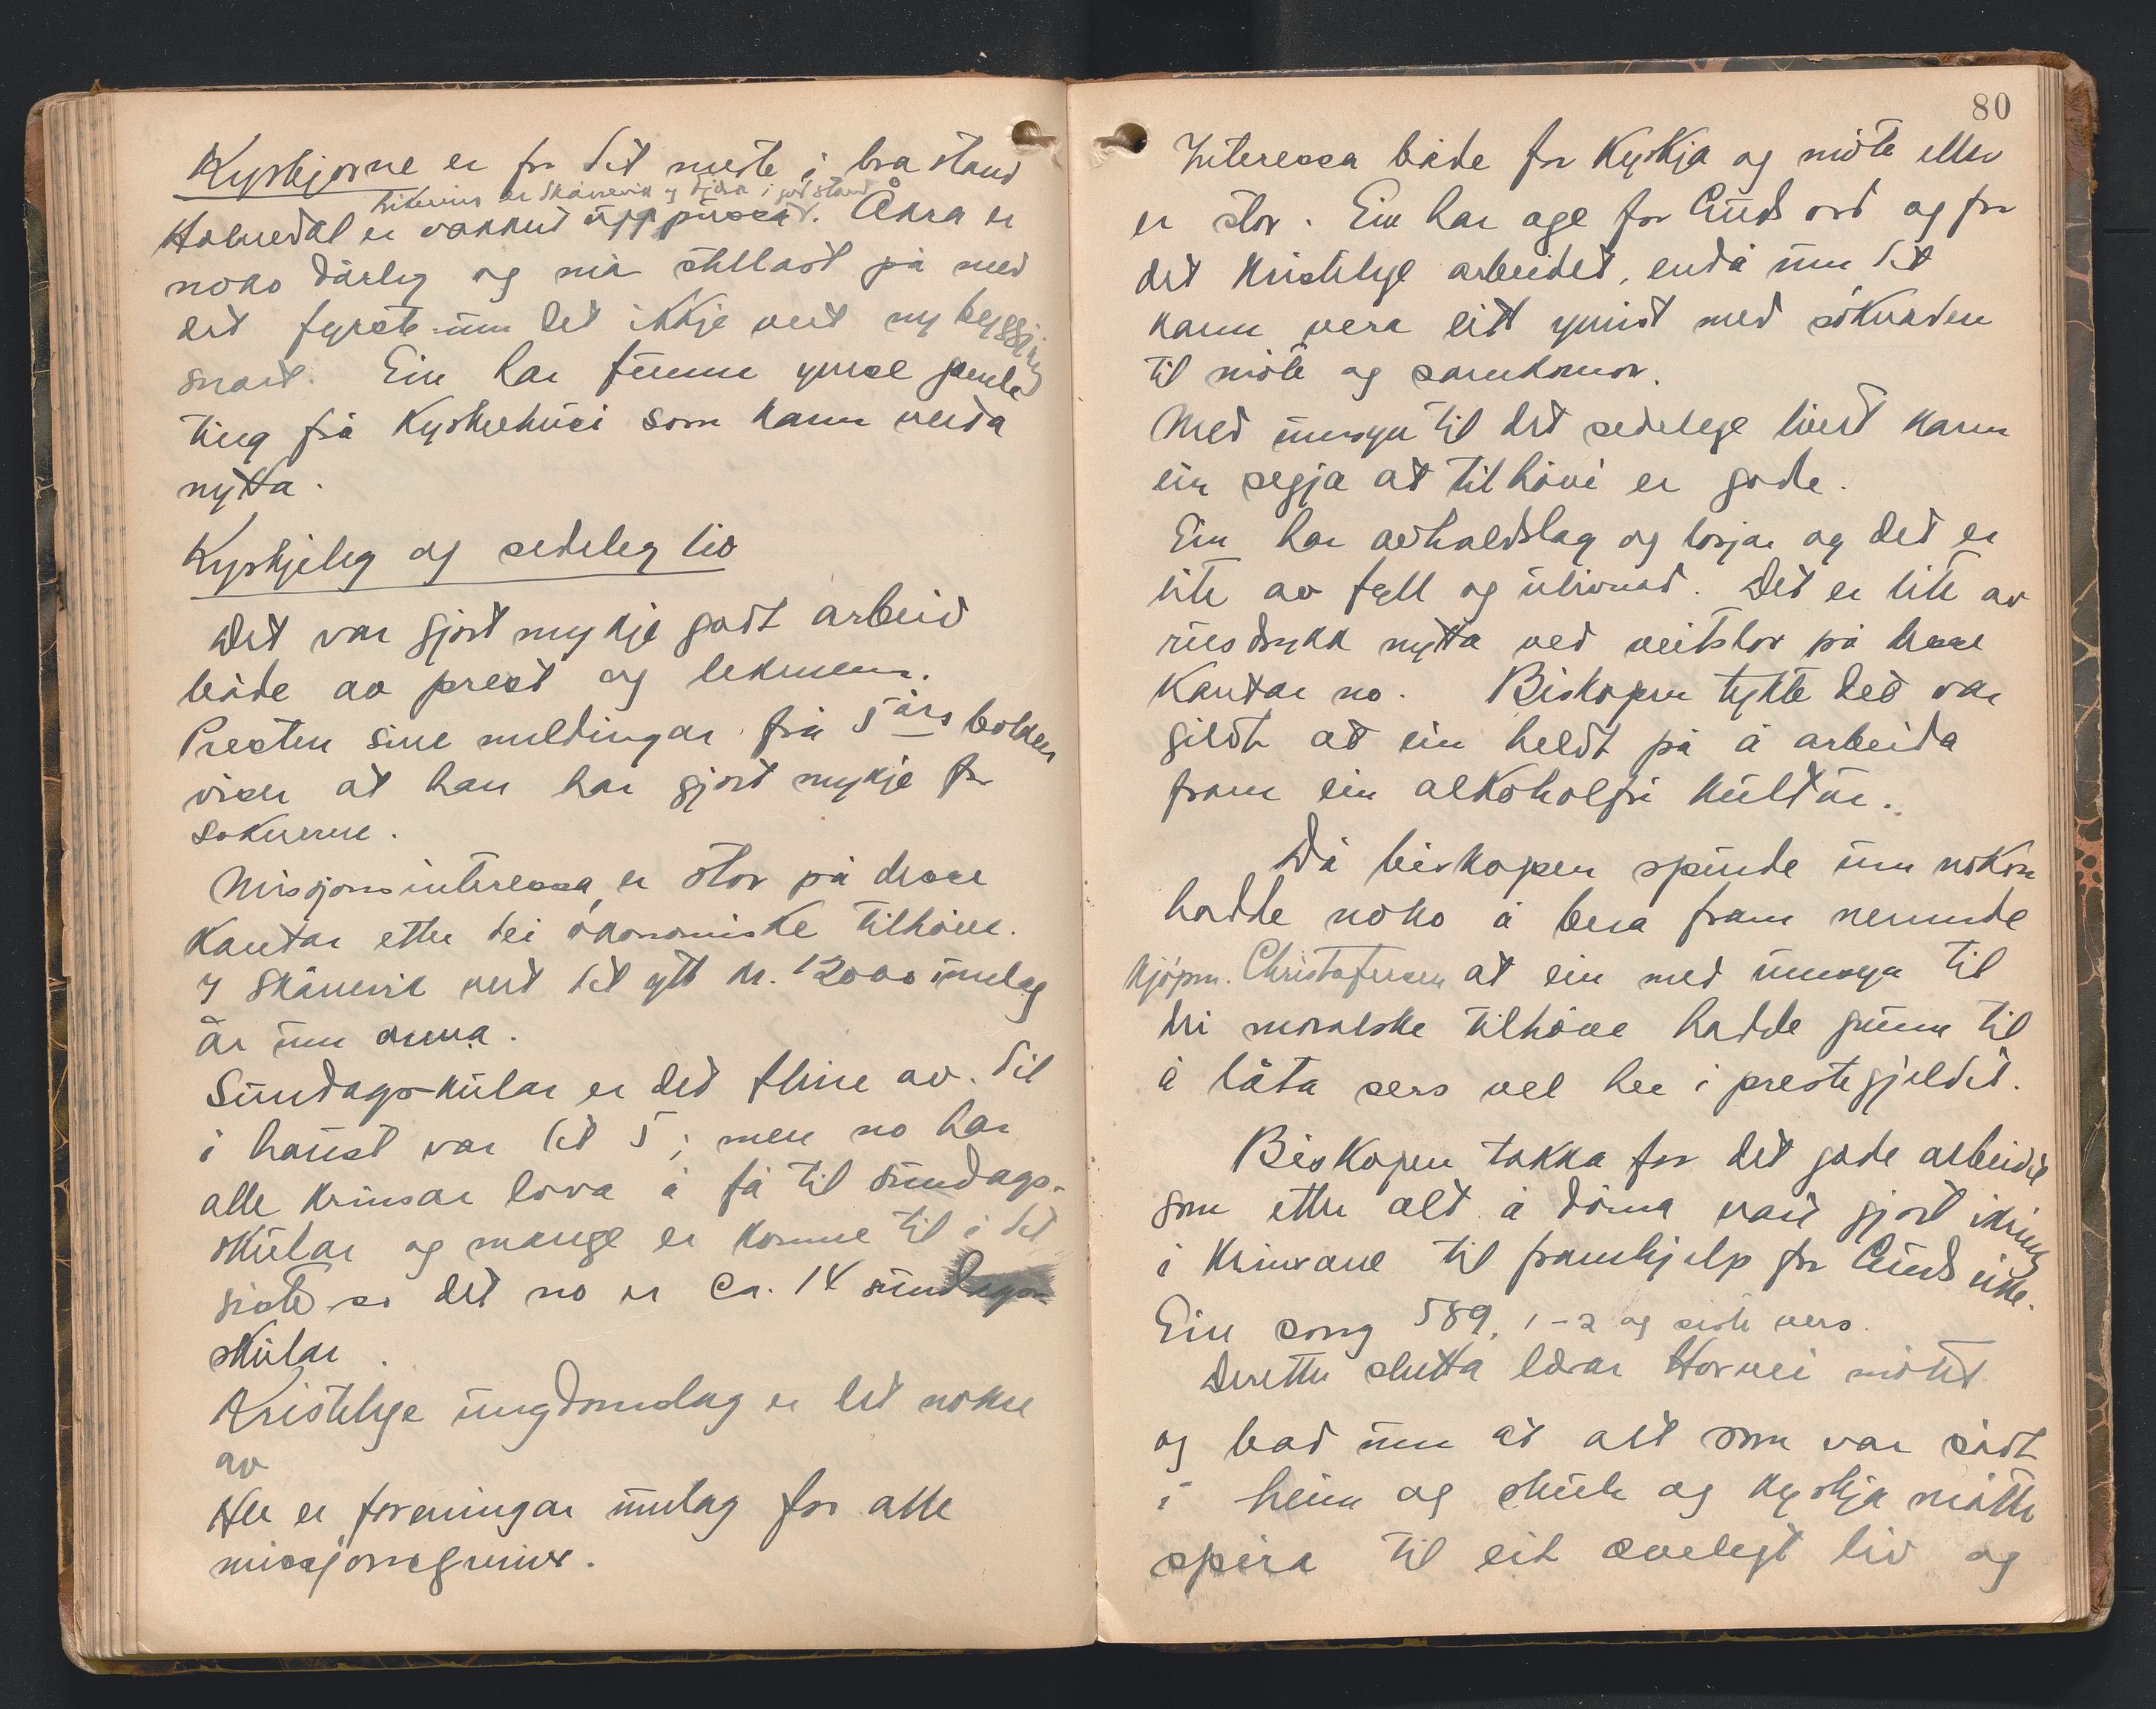 Kyrkjorne er for det meste i bra stand
Literius er Skånevik og Fjæra i god stand
Holmedal er vakkert upppussa. Åkra er
noko dårleg og må stellast på med
det fyrste um det ikkje vert nybygging
snart. Ein har funne ymse gamle
ting frå kyrkjehusi som kann verda
nytta.
Kyrkjeleg og sedeleg liv
Det var gjort mykje godt arbeid
både av prest og lekmenn.
Presten sine meldingar frå 5års bolken
viser at han har gjort mykje for
soknerne.
Misjonsinteressa er stor på desse
kantar etter dei økonomiske tilhøve.
I Skånevik vert det ytt kr. 12000 umlag
år um anna.
Sundagsskular er det fleire av. Til
i haust var det 5; men no har
alle krinsar lova å få til sundags-
skular og mange er komne til i det
siste so det no er ca. 14 sundags
skular.
Kristelege ungdomslag er det nokre
av
Her er foreningar umlag for alle
missjonsgreiner.
80
Interessa både for kyrkja og møte elles
er stor. Ein har age for Guds ord og for
det kristelege arbeidet, endå um det
kann vera litt ymist med søknaden
til møte og samkomor.
Med umsyn til det sedelege livet kann
ein segja at tilhøvi er gode.
Ein har avhaldslag og losjar og det er
lite av fyll og ulivnad. Det er lite av
rusdrykk nytta ved veitslor på desse
kantar no. Biskopen tykte det var
gildt at ein heldt på å arbeida
fram ein alkoholfri kultur.
Då biskopen spurde um nokon
hadde noko å bera fram nemnde
kjøpm. Christofersen at ein med umsyn til
dei moralske tilhøve hadde grunn til
å låta sers vel her i prestegjeldet.
Biskopen takka for det gode arbeidet
som etter alt å døma vart gjort ikring
i krinsane til framhjelp for Guds rike.
Ein song 589, 1-2 og siste vers.
Deretter slutta lærar Horvei møtet
og bad um at alt som var sådt
i heim og skule og kyrkja måtte
spira til eit æveleg liv og